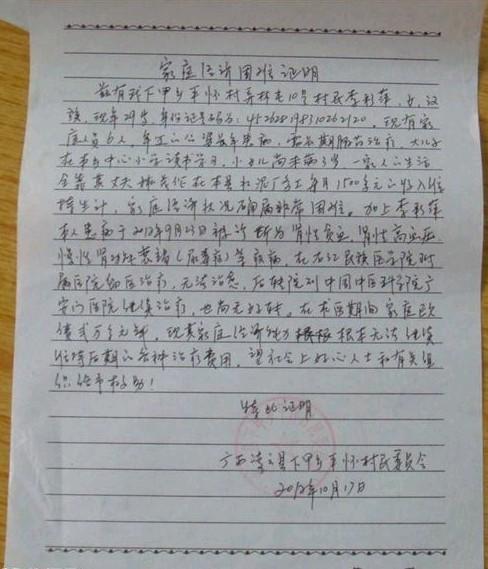 家庭经济困难证明
兹有我下甲乡平怀村弄林屯10号村民李彩萍，女，汉
族，现年29岁，身份证号码：452628198310262120。现有家
庭人员6人，年迈的公婆长年患病，需长期服药治疗，大儿子
在本乡中心小学读书学习，小女儿尚未满3岁，一家人的生活
全靠其丈夫 在本县水泥厂务工每月1500多元的收入维
持生计，家庭经济状况确属非常困难。加上李彩萍
本人患病于2012年9月23日被诊断为肾性贫血，肾性高血压，
慢性肾功能衰竭（尿毒症）等疾病，在右江民族医学院附
属医院住医治疗，无法治愈，后转院到中国中医科学院广
安门医院继续治疗，也尚无好转。在求医期间家庭欠
债贰万多元钱，现其家庭经济能力根本无法继续
维持后期的各种治疗费用，望社会上好心人士和有关组
织给予救助！
特此证明
广西凌云县下甲乡平怀村民委员会
2012年10月17日